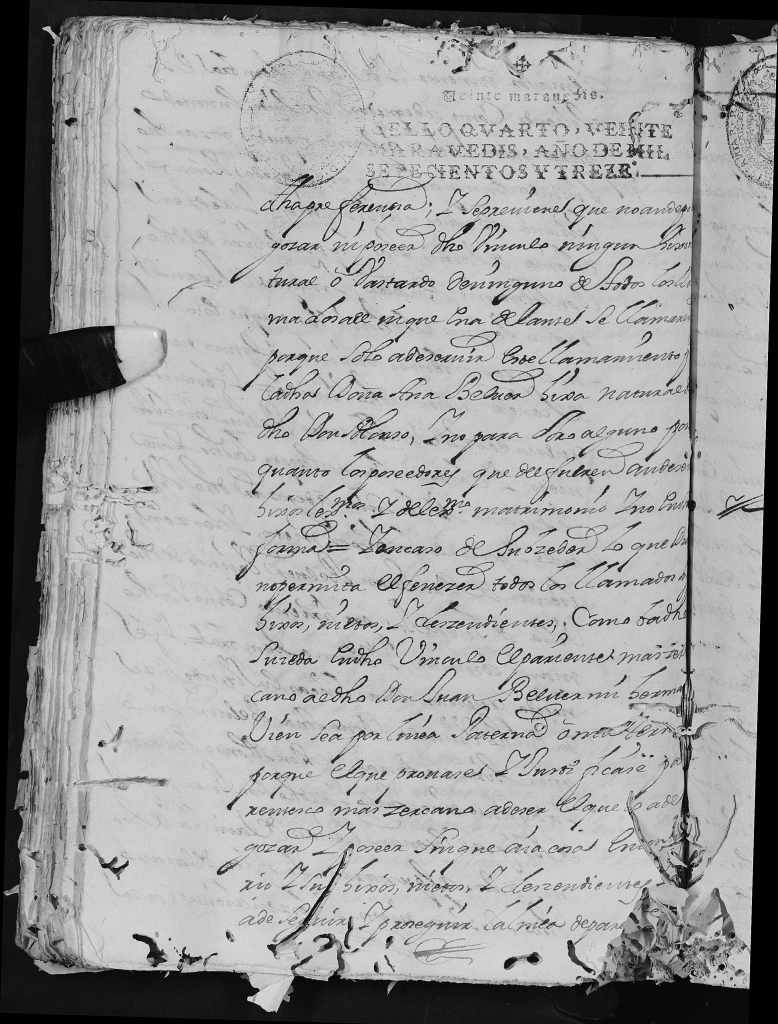 Veinte marauedis.
SELLO QVARTO, VEINTE
MARAVEDIS, AÑO DE MIL
SETECIENTOS Y TREZE.
dha preferenzia; Y se preuiene que no an de
gozar ni poseer dho Vinculo ningun hixo
tural ô bastardo de ninguno de todos los
mados aunque de antes se llamaren
porque solo a de seruir este llamamiento
la dha Doña Ana Beluer hixa natural
dho Don Alonso, Y no para otro alguno por
quanto los poseedores que del fueren an de ser
hixos lexmos Y de lexmo matrimonio Y no en otra
forma = Y en caso de suszeder lo que Dios
no permita el fenezer todos los llamados
hixos, nietos, Y deszendientes, Como ba dho
Suzeda en dho Vinculo el pariente mas zer
cano a el dho Don Juan Beluer mi herma
Vien sea por linea Paterna ô materna
porque el que prouare Y Justificase pa
rentesco mas zercano a de ser el que lo a de
gozar Y poseer sin que aia cosa en
rio Y sus hixos, nietos, Y deszendientes
a de seguir Y proseguir la linea de